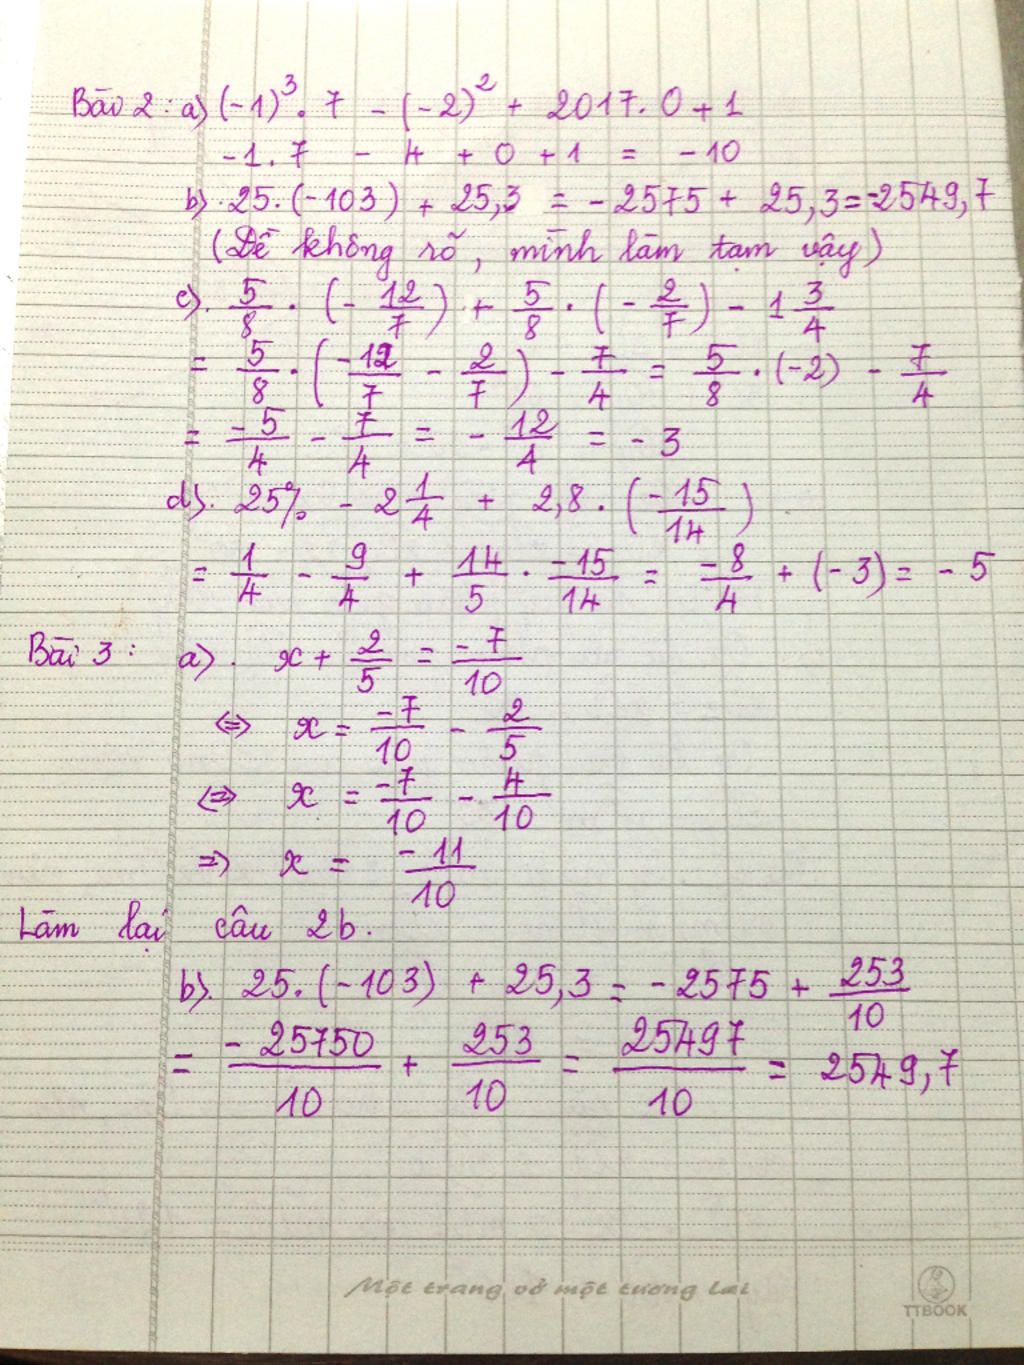 Bài 2: a) (-1)³ . 7 - (-2)² + 2017 . 0 + 1
-1 . 7 - 4 + 0 + 1 = -10
b) . 25 . (-103) + 25,3 = -2575 + 25,3 = -2549,7
(Đề không rõ, mình làm tạm vậy)
c) . 5/8 . (- 12/7) + 5/8 . (- 2/7) - 1 3/4
= 5/8 . (-12/7 - 2/7) - 7/4 = 5/8 . (-2) - 7/4
= -5/4 - 7/4 = - 12/4 = -3
d) . 25% - 2 1/4 + 2,8 . (-15/14)
= 1/4 - 9/4 + 14/5 . -15/14 = -8/4 + (-3) = -5
Bài 3 : a) . x + 2/5 = -7/10
⇔ x = -7/10 - 2/5
⇔ x = -7/10 - 4/10
⇒ x = -11/10
Làm lại câu 2b.
b) . 25 . (-103) + 25,3 = -2575 + 253/10
= -25750/10 + 253/10 = 25497/10 = 2549,7
Một trang vở một tương lai
TTBOOK